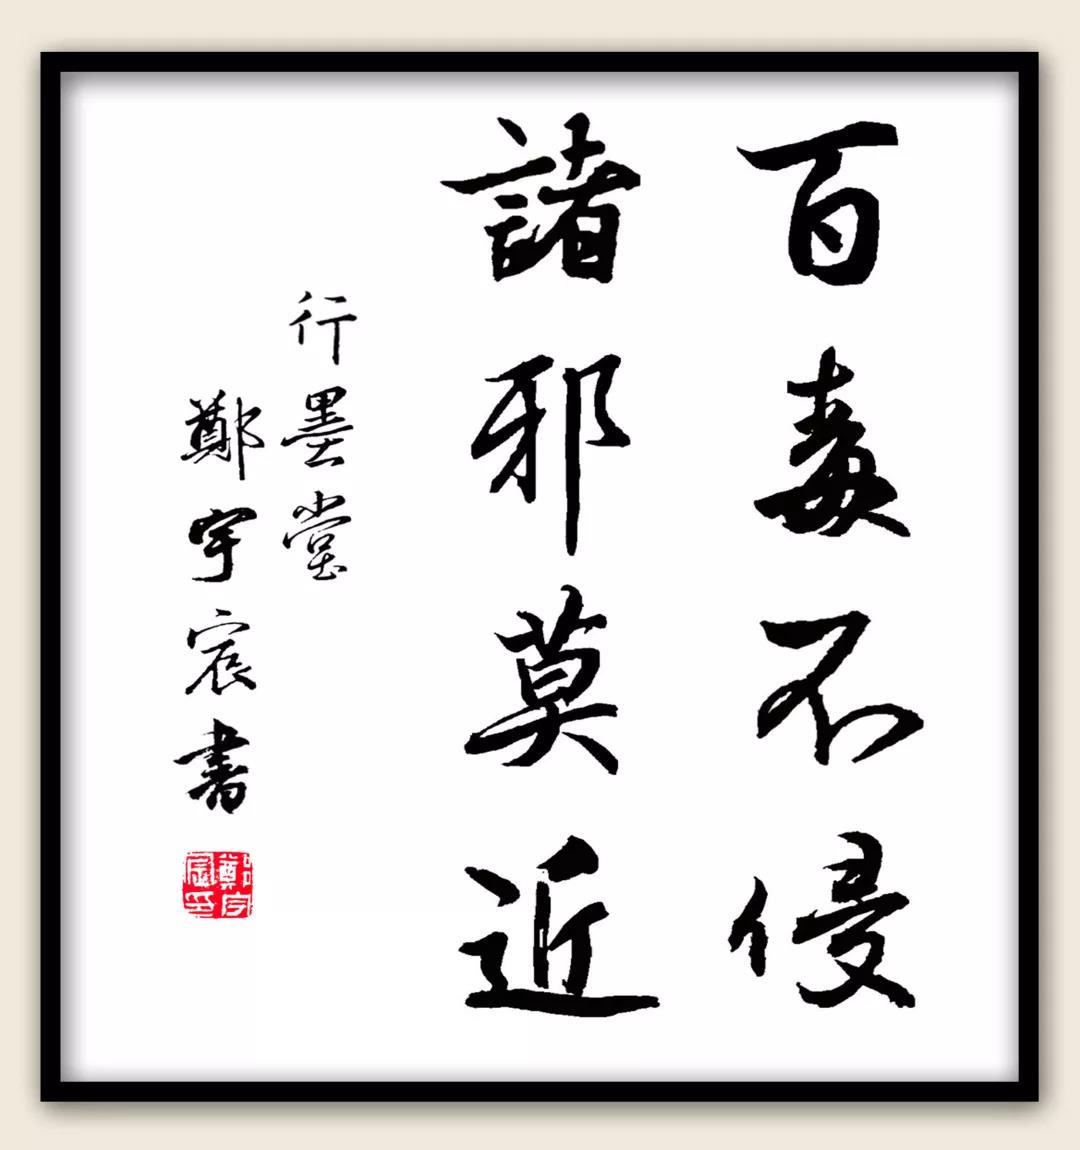 百毒不侵
諸邪莫近
行墨堂
鄭宇宸書
鄭宇宸印